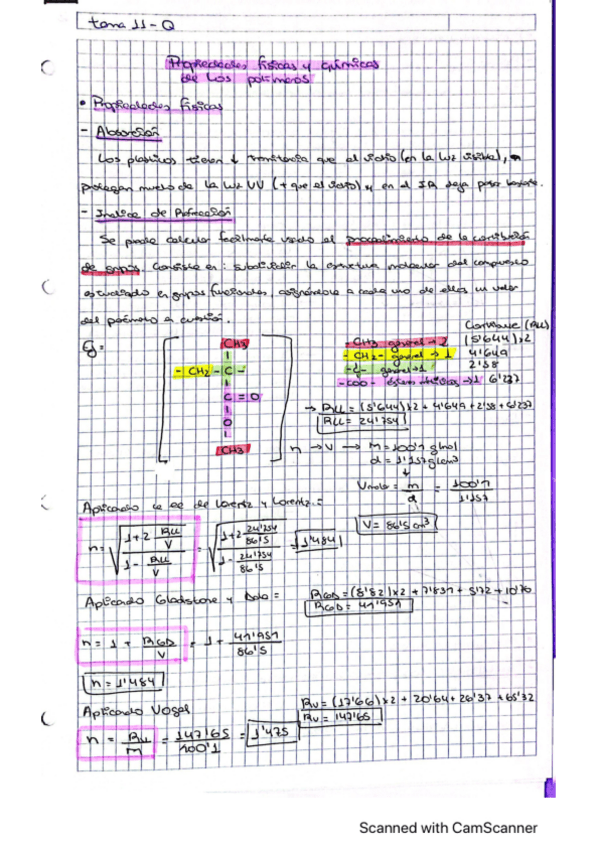 tema 11 - Q
Propiedades físicas y químicas
de los polímeros
• Propiedades físicas
- Absorción
Los plásticos tienen ↓ transmitancia que el vidrio (en la luz visible),
protegen mucho de la luz UV (+ que el vidrio) y en el IR deja pasar bastante.
- Indice de Refracción
Se puede calcular facilmente usando el procedimiento de la contribución
de grupos. Consiste en: subdividir la estructura molecular del compuesto
estudiado en grupos funcionales, asignándole a cada uno de ellos un valor
del parámetro en cuestión.
Contribuc (RLL)
Ej =
CH3
- CH2 - C -
C = O
O
CH3
n
-CH3 general → 2 (5'644)x2
-CH2- general → 1 4'649
-C- general → 1 2'58
-COO- → 1 6'237
→ RLL = (5'644)x2 + 4'649 + 2'58 + 6'237
RLL = 24'754
→ V → M = 100'1 g/mol
d = 1'157 g/cm³
Vmolar = m/d = 100'1/1'157
V = 86'5 cm³
Aplicando la ec de Lorentz y Lorentz =
n = √((1+2 RLL/V)/(1 - RLL/V)) = √((1+2 24'754/86'5)/(1 - 24'754/86'5)) = 1'484
Aplicando Gladstone y Dale =
RGD = (8'82)x2 + 7'831 + 5'72 + 10'76
RGD = 41'951
n = 1 + RGD/V = 1 + 41'951/86'5
n = 1'484
Aplicando Vogel
RV = (17'66)x2 + 20'64 + 26'37 + 65'32
RV = 147'65
n = RLL/M = 147'65/100'1 = 1'475
Scanned with CamScanner